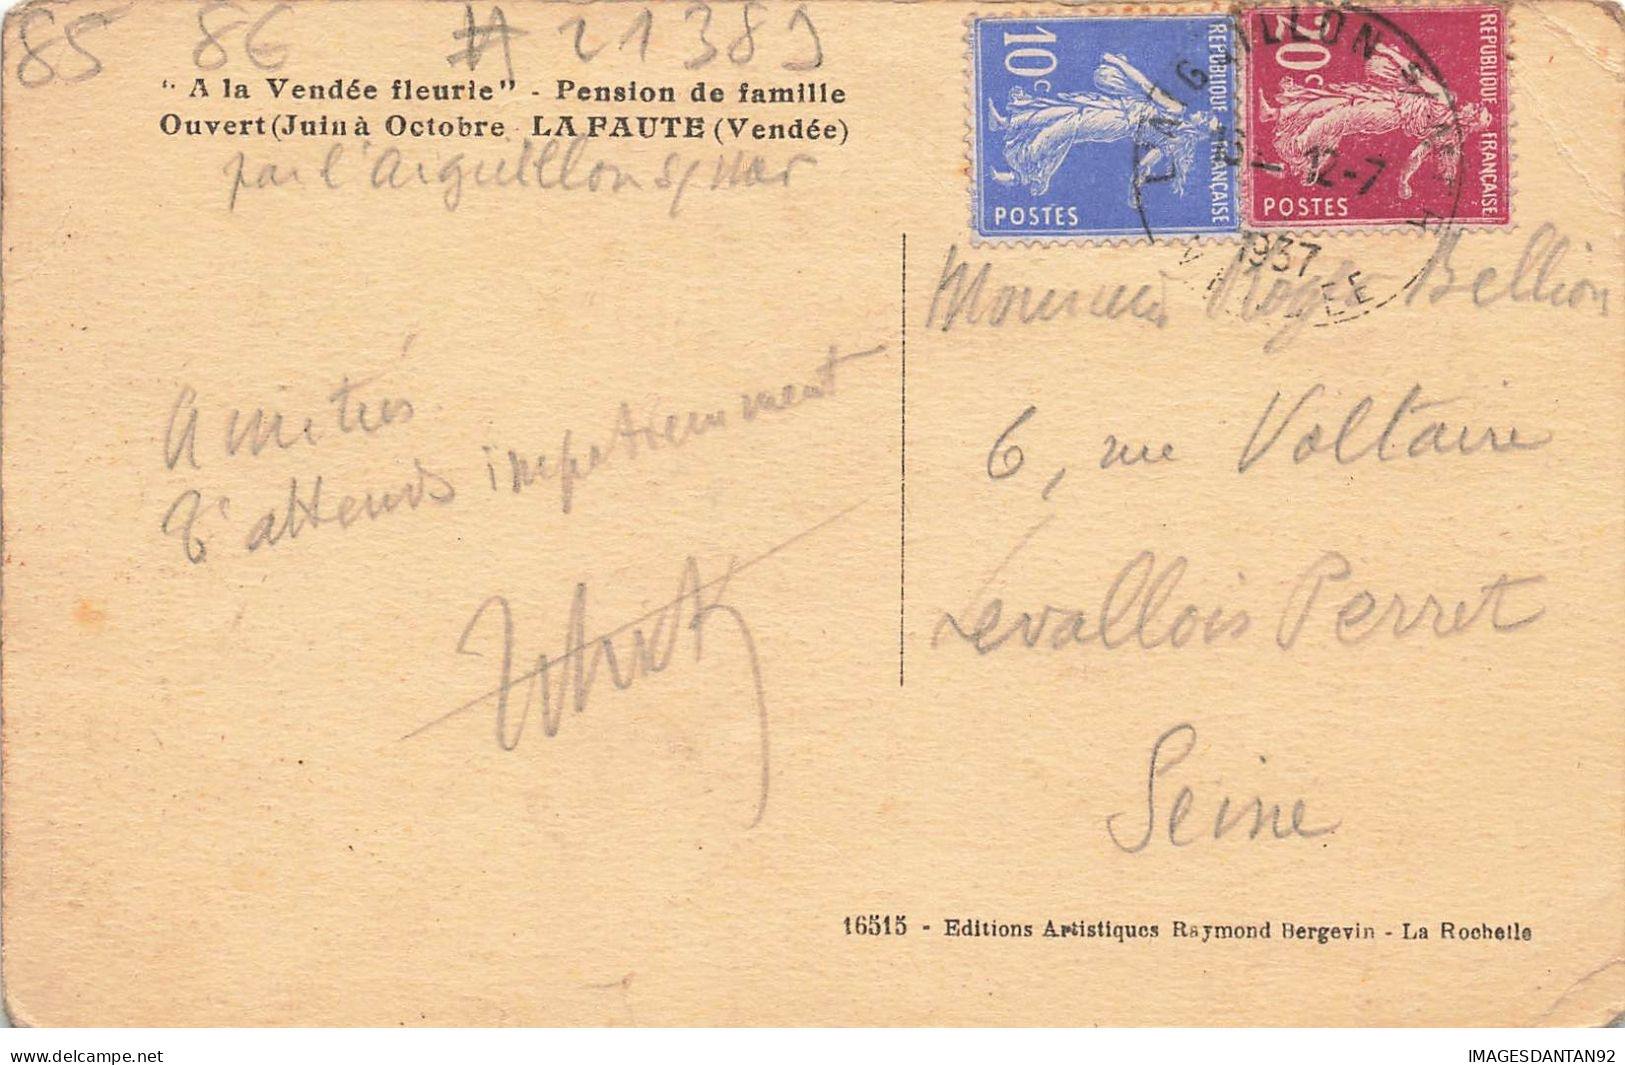 85 86 # 21389
“ A la Vendée fleurie" - Pension de famille
Ouvert (Juin à Octobre LA FAUTE (Vendée)
par l'aiguillon s/ Mer
10c RÉPUBLIQUE FRANÇAISE POSTES
20c RÉPUBLIQUE FRANÇAISE POSTES
L'AIGUILLON S. MER
12-7
1937
VENDÉE
Amitiés
T'attends impatiemment
Monsieur Roger Bellion
6, rue Voltaire
Levallois Perret
Seine
16515 - Editions Artistiques Raymond Bergevin - La Rochelle
www.delcampe.net
IMAGESDANTAN92